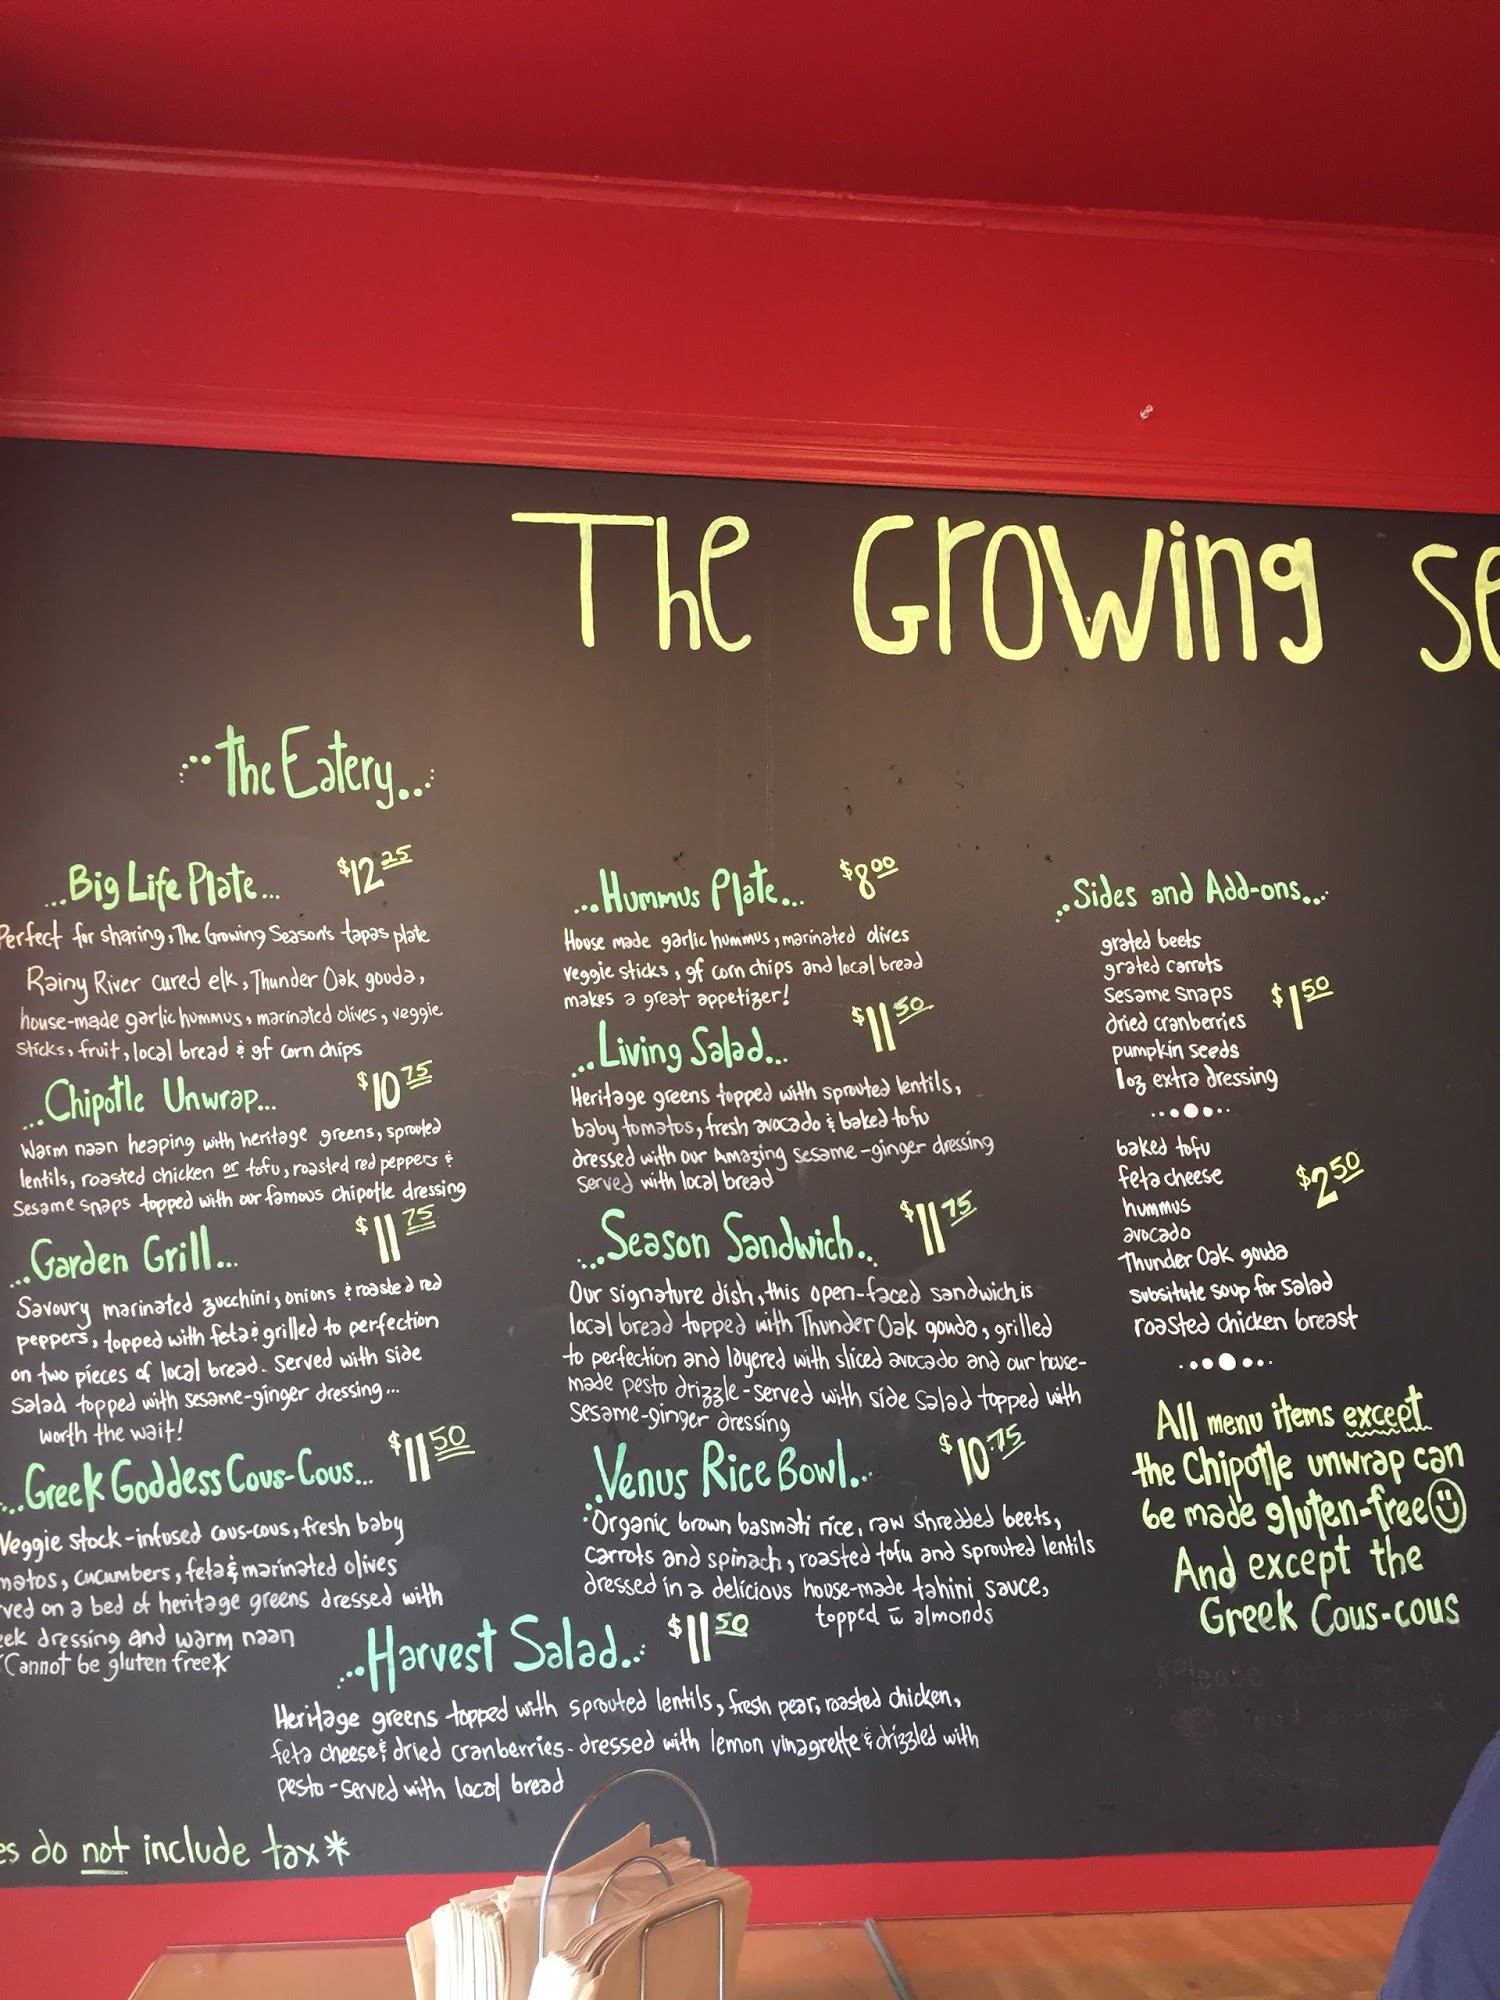 The Growing Se
The Eatery
Big Life Plate... $12.25
Perfect for sharing, The Growing Season's tapas plate
Rainy River cured elk, Thunder Oak gouda,
house-made garlic hummus, marinated olives, veggie
sticks, fruit, local bread & gf corn chips
...Chipotle Unwrap... $10.75
Warm naan heaping with heritage greens, sprouted
lentils, roasted chicken or tofu, roasted red peppers &
sesame snaps topped with our famous chipotle dressing
...Garden Grill... $11.75
Savoury marinated zucchini, onions & roasted red
peppers, topped with feta & grilled to perfection
on two pieces of local bread. Served with side
salad topped with sesame-ginger dressing...
worth the wait!
...Greek Goddess Cous-Cous... $11.50
Veggie stock-infused cous-cous, fresh baby
matos, cucumbers, feta & marinated olives
ved on a bed of heritage greens dressed with
eek dressing and warm naan
*Cannot be gluten free*
...Hummus Plate... $8.00
House made garlic hummus, marinated olives
veggie sticks, gf corn chips and local bread
makes a great appetizer!
...Living Salad... $11.50
Heritage greens topped with sprouted lentils,
baby tomatos, fresh avocado & baked tofu
dressed with our Amazing sesame-ginger dressing
served with local bread
...Season Sandwich... $11.75
Our signature dish, this open-faced sandwich is
local bread topped with Thunder Oak gouda, grilled
to perfection and layered with sliced avocado and our house-
made pesto drizzle - served with side salad topped with
sesame-ginger dressing
...Venus Rice Bowl... $10.75
Organic brown basmati rice, raw shredded beets,
carrots and spinach, roasted tofu and sprouted lentils
dressed in a delicious house-made tahini sauce,
topped w almonds
...Harvest Salad... $11.50
Heritage greens topped with sprouted lentils, fresh pear, roasted chicken,
feta cheese & dried cranberries - dressed with lemon vinagrette & drizzled with
pesto - served with local bread
...Sides and Add-ons...
grated beets
grated carrots
sesame snaps $1.50
dried cranberries
pumpkin seeds
1oz extra dressing
baked tofu
feta cheese $2.50
hummus
avocado
Thunder Oak gouda
subsitute soup for salad
roasted chicken breast
All menu items except
the Chipotle unwrap can
be made gluten-free
And except the
Greek Cous-cous
es do not include tax*